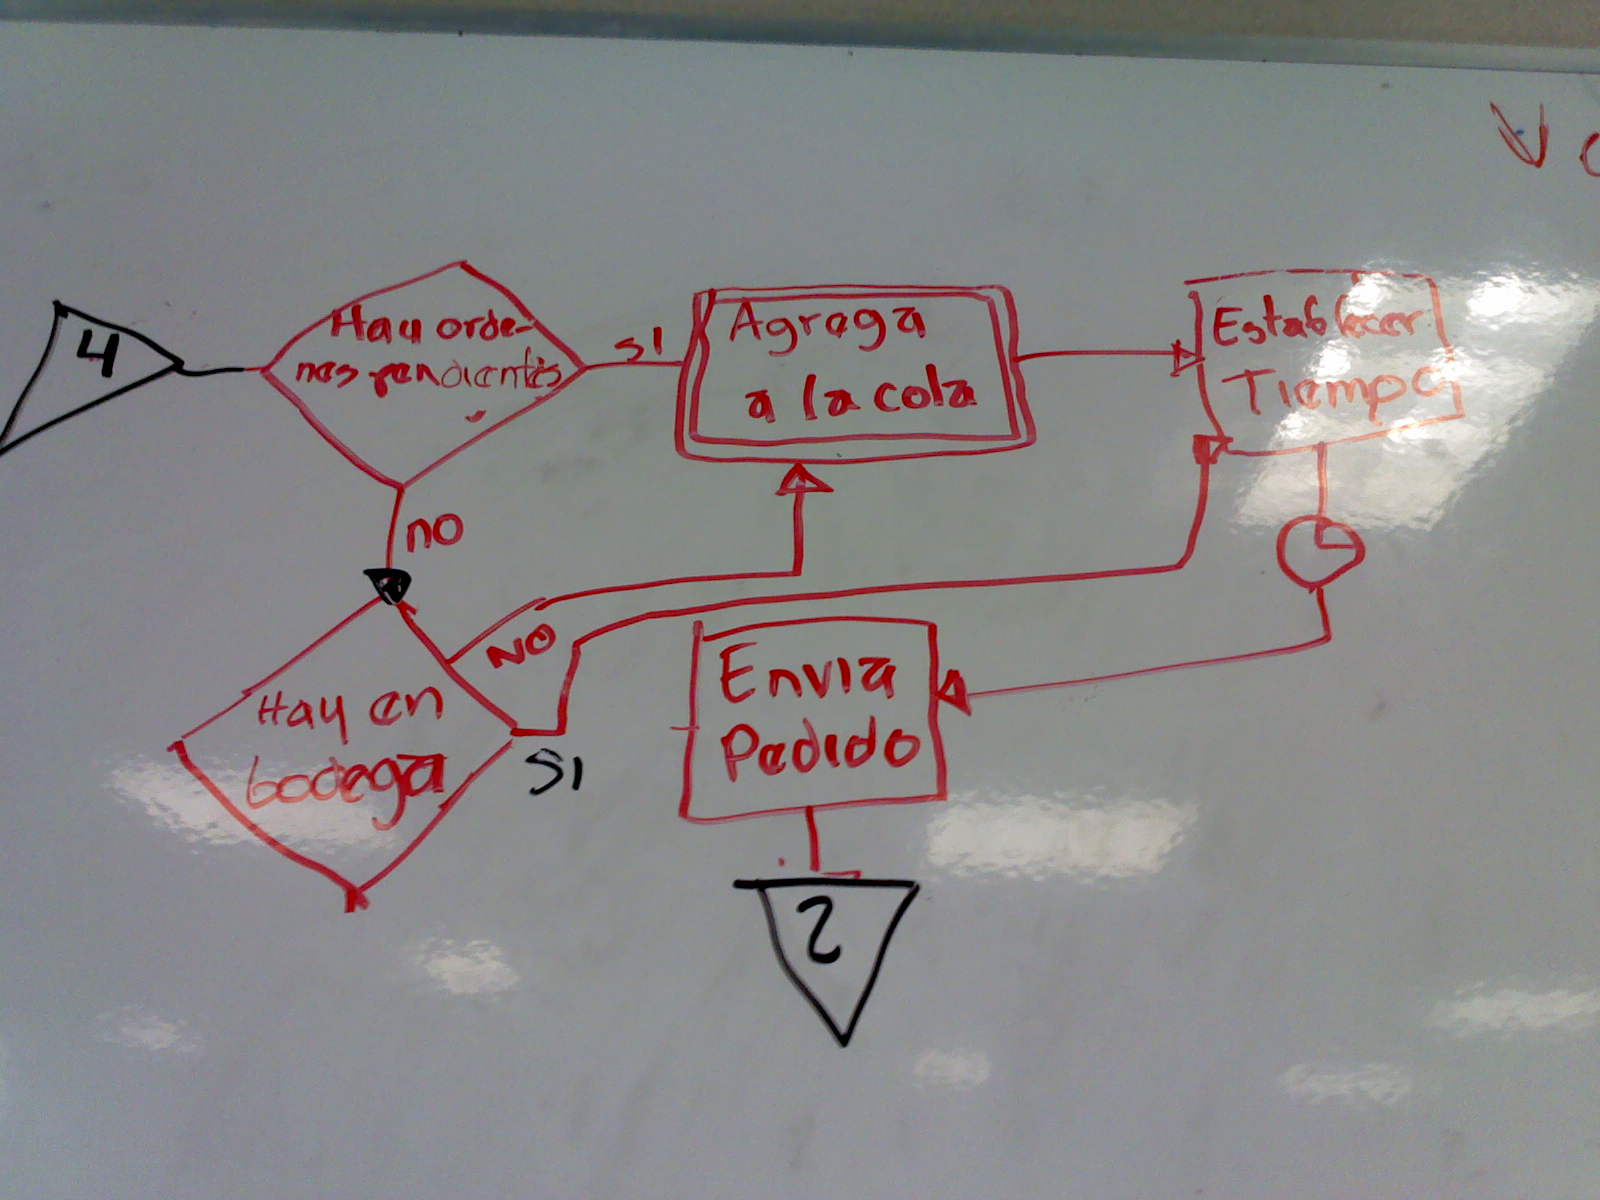 4
Hay orde-
nes pendientes
SI
Agrega
a la cola
Establecer
Tiempo
NO
NO
Hay en
bodega
SI
Envia
Pedido
2